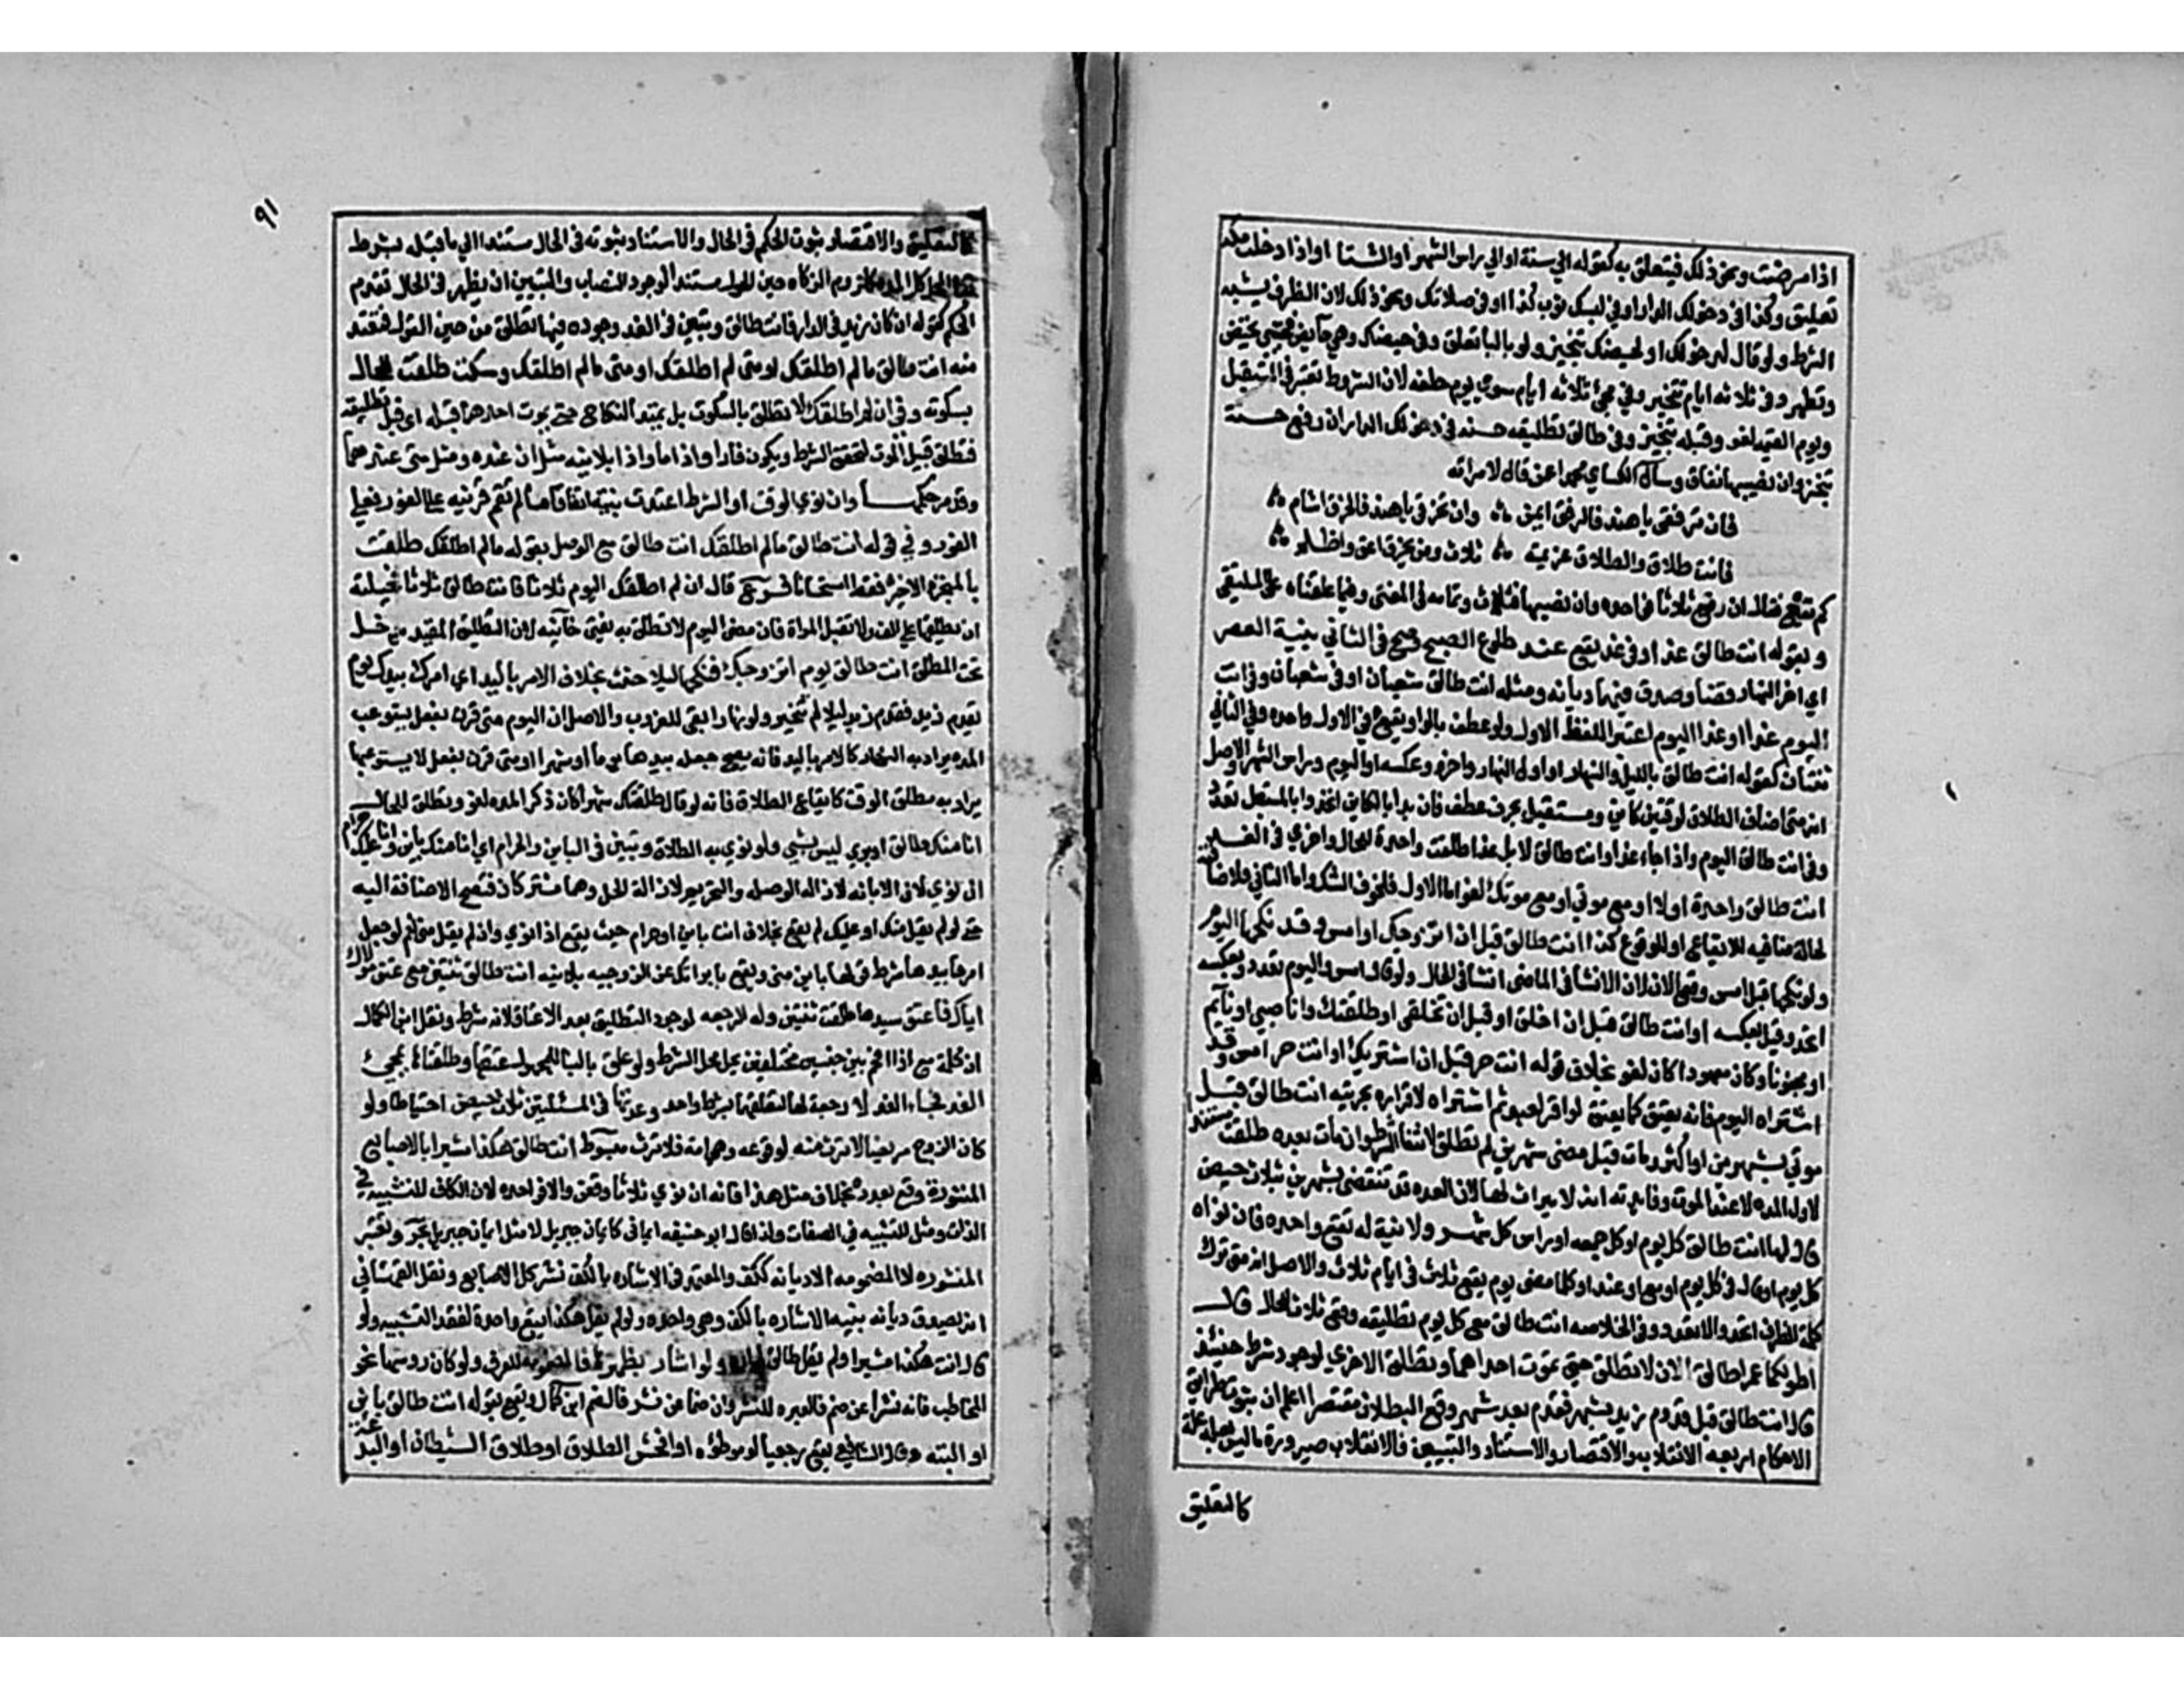 اذا مرضت ونحو ذلك فيتعلق به كقوله الي سنة او الي راس الشهر او الشتا او اذا دخلت مكة
تعليق وكذا في دخولك الدار او في لبسك ثوب كذا او في صلاتك ونحو ذلك لان الظرف يشبه
الشرط ولو قال لدخولك او لحيضك تنجيز ولو بالبا تعلق وفي حيضك وهي حايض فحتي تحيض
وتطهر وفي ثلاثه ايام تنجيز وفي مجئ ثلاثه ايام سوي يوم حلفه لان الشروط تعتبر في المستقبل
ويوم القيمه لغو وقبله تنجيز وفي طالق تطليقه حسنه في دخولك الدار ان رفع حسنة
تنجز وان نصبها تعلق وسال الكساي محمدا عن قال لامراته
فان ترفقي يا هند فالرفق ايمن وان تخرقي يا هند فالخرق اشام
فانت طلاق والطلاق عزيمة ثلاث ومن يخرق اعق واظلم
كم تقع فقال ان رفع ثلاثا فواحده وان نصبها فثلاث وتمامه في المغني وفيما علقناه علي الملتقي
وبقوله انت طالق غدا او في غد يقع عند طلوع الصبح وصح في الثاني نية العصر
اي اخر النهار قضا وصدق فيهما ديانه ومثله انت طالق شعبان او في شعبان وفي انت
اليوم غدا او غدا اليوم اعتبر اللفظ الاول ولو عطف بالواو يقع في الاول واحده وفي الثاني
ثنتان كقوله انت طالق بالليل والنهار او اول النهار واخره وعكسه او اليوم وراس الشهر والاصل
انه متي اضاف الطلاق لوقتين كاين ومستقبل بحرف عطف فان بدا بالكاين اتحد وا بالمستقبل تعدد
وفي انت طالق اليوم واذا جاء غد او انت طالق لا بل غدا طلقت واحدة للحال واخري في الغد
انت طالق واحدة اولا او مع موتي او مع موتك لغو اما الاول فلحرف الشك واما الثاني فلاضافته
لحالة منافيه للايقاع او للوقوع كذا انت طالق قبل ان اتزوجك او امس وقد نكحها اليوم
ولو نكحها قبل امس وقع الان لان الانشا في الماضي انشا في الحال ولو قال امس واليوم تعدد وبعكسه
اتحد وقيل بعكسه او انت طالق قبل ان اخلق او قبل ان تخلقي او طلقتك وانا صبي او نايم
او مجنون وكان معهودا كان لغو بخلاف قوله انت حر قبل ان اشتريك او انت حر امس وقد
اشتراه اليوم فانه يعتق كما يعتق لو اقر لعبد ثم اشتراه لاقراره بحريته انت طالق قبل
موتي بشهرين او اكثر ومات قبل مضي شهرين لم تطلق لانتفا الشرط وان مات بعده طلقت مستندا
لاول المده لا عند الموت وفايدته انه لا ميراث لها لان العده قد تنقضي بشهرين بثلاث حيض
قال لها انت طالق كل يوم او كل جمعه او راس كل شهر ولا نية له تقع واحده فان نواه
كل يوم او قال في كل يوم او مع او عند او كلما مضي يوم يقع ثلاث في ايام ثلاث والاصل انه متي ترك
كلمة الظرف اتحد والا تعدد وفي الخلاصه انت طالق مع كل يوم تطليقه وقع ثلاث للحال قال
اطولكما عمرا طالق الان لا تطلق حتي تموت احداهما وتطلق الاخري لوجود شرط حينئذ
قال انت طالق قبل قدوم زيد بشهر فقدم بعد شهر وقع الطلاق مقتصرا اعلم ان ثبوت طرايق
الاحكام اربعه الانقلاب والاقتصار والاستناد والتبيين فالانقلاب صيرورة ما ليس بعلة علة
كالتعليق
٩١
كالتعليق والاقتصار ثبوت الحكم في الحال والاستناد ثبوته في الحال مستندا الي ما قبله بشرط
كلزوم الزكاه حين الحول مستندا لوجود النصاب والتبيين ان يظهر في الحال تقدم
الحكم كقوله ان كان زيد في الدار فانت طالق وتبين في الغد وجوده فيها تطلق من حين القول فتعتد
منه انت طالق ما لم اطلقك او متي لم اطلقك او متي ما لم اطلقك وسكت طلقت للحال
بسكوته وفي ان لم اطلقك لا تطلق بالسكوت بل يمتد النكاح حتي يموت احدهما قبله اي قبل تطليقه
فتطلق قبيل الموت لتحقق الشرط ويكون فارا واذا ما واذا بلا نيه مثل ان عنده ومثل متي عندهما
وقد مر حكمها وان نوي الوقت او الشرط اعتبرت نيته اتفاقا ما لم تقم قرينه علي الفور فعلي
الفور وفي قوله انت طالق ما لم اطلقك انت طالق مع الوصل بقوله ما لم اطلقك طلقت
بالمنجزة الاخيرة فقط استحسانا فرع قال ان لم اطلقك اليوم ثلاثا فانت طالق ثلاثا فحيلته
ان يطلقها علي الف ولا تقبل المراة فان مضي اليوم لا تطلق به يفتي خانيه لان التطليق المقيد يدخل
تحت المطلق انت طالق يوم اتزوجك فنكحها ليلا حنث بخلاف الامر باليد اي امرك بيدك يوم
يقدم زيد فقدم زيد ليلا لم تتخير ولو نهارا بقي للغروب والاصل ان اليوم متي قرن بفعل يستوعب
المده يراد به النهار كالامر باليد فانه يصح جعله بيدها يوما او شهرا او متي قرن بفعل لا يستوعبها
يراد به مطلق الوقت كايقاع الطلاق فانه لو قال طلقتك شهرا كان ذكر المده لغو وتطلق للحال
انا منك طالق او بري ليس بشيي ولو نوي به الطلاق وتبين في الباين والحرام اي انا منك باين وانا عليك حرام
ان نوي لان الابانه لازاله الوصله والتحريم لازالة الحل وهما مشتركان فتصح الاضافة اليه
حتي لو لم يقل منك او عليك لم يقع بخلاف انت باين او حرام حيث يقع اذا نوي واذ لم يقل مني نعم لو جعل
امرها بيدها شرط قولها باين مني ويقع بابراتك عن الزوجيه بلا نيه انت طالق ثنتين مع عتق مولاك
اياك فاعتق سيدها طلقت ثنتين وله الرجعه لوجود التطليق بعد الاعتاق لانه شرط ونقل ابن الكمال
ان كلمة مع اذا اقحم بين جنسين مختلفين يحل محل الشرط ولو علق بالبنا للمجهول عتقها وطلقتاها بمجيئ
الغد فجاء الغد لا رجعة لها لتعلقهما بشرط واحد وعدتها في المسئلتين ثلاث حيض احتياطا ولو
كان الزوج مريضا لا ترث منه لوقوعه وهي امة فلا ترث مبسوط انت طالق هكذا مشيرا بالاصابع
المنشورة وقع بعدده بخلاف مثل هذا فانه ان نوي ثلاثا وقعن والا فواحده لان الكاف للتشبيه في
الذات ومثل للتشبيه في الصفات ولذا قال ابو حنيفه ايماني كايمان جبريل لا مثل ايمان جبريل بحر وتعتبر
المنشوره لا المضمومه الا ديانه ككف والمعتمد في الاشاره بالكف نشر كل الاصابع ونقل القهستاني
انه يصدق ديانه بنيه الاشاره بالكف وهي واحده ولو لم يقل هكذا يقع واحدة لفقد التشبيه ولو
قال انت هكذا مشيرا ولم يقل طالق ولو اشار بظهورها فالمضمومه للعرف ولو كان روسها نحو
المخاطب فانه نشرا عن ضم فالعبره للنشر وان ضما عن نشر فالضم ابن كمال ويقع بقوله انت طالق باين
او البته وقال الشافعي يقع رجعيا لو موطؤه او افحش الطلاق او طلاق الشيطان او البدعة